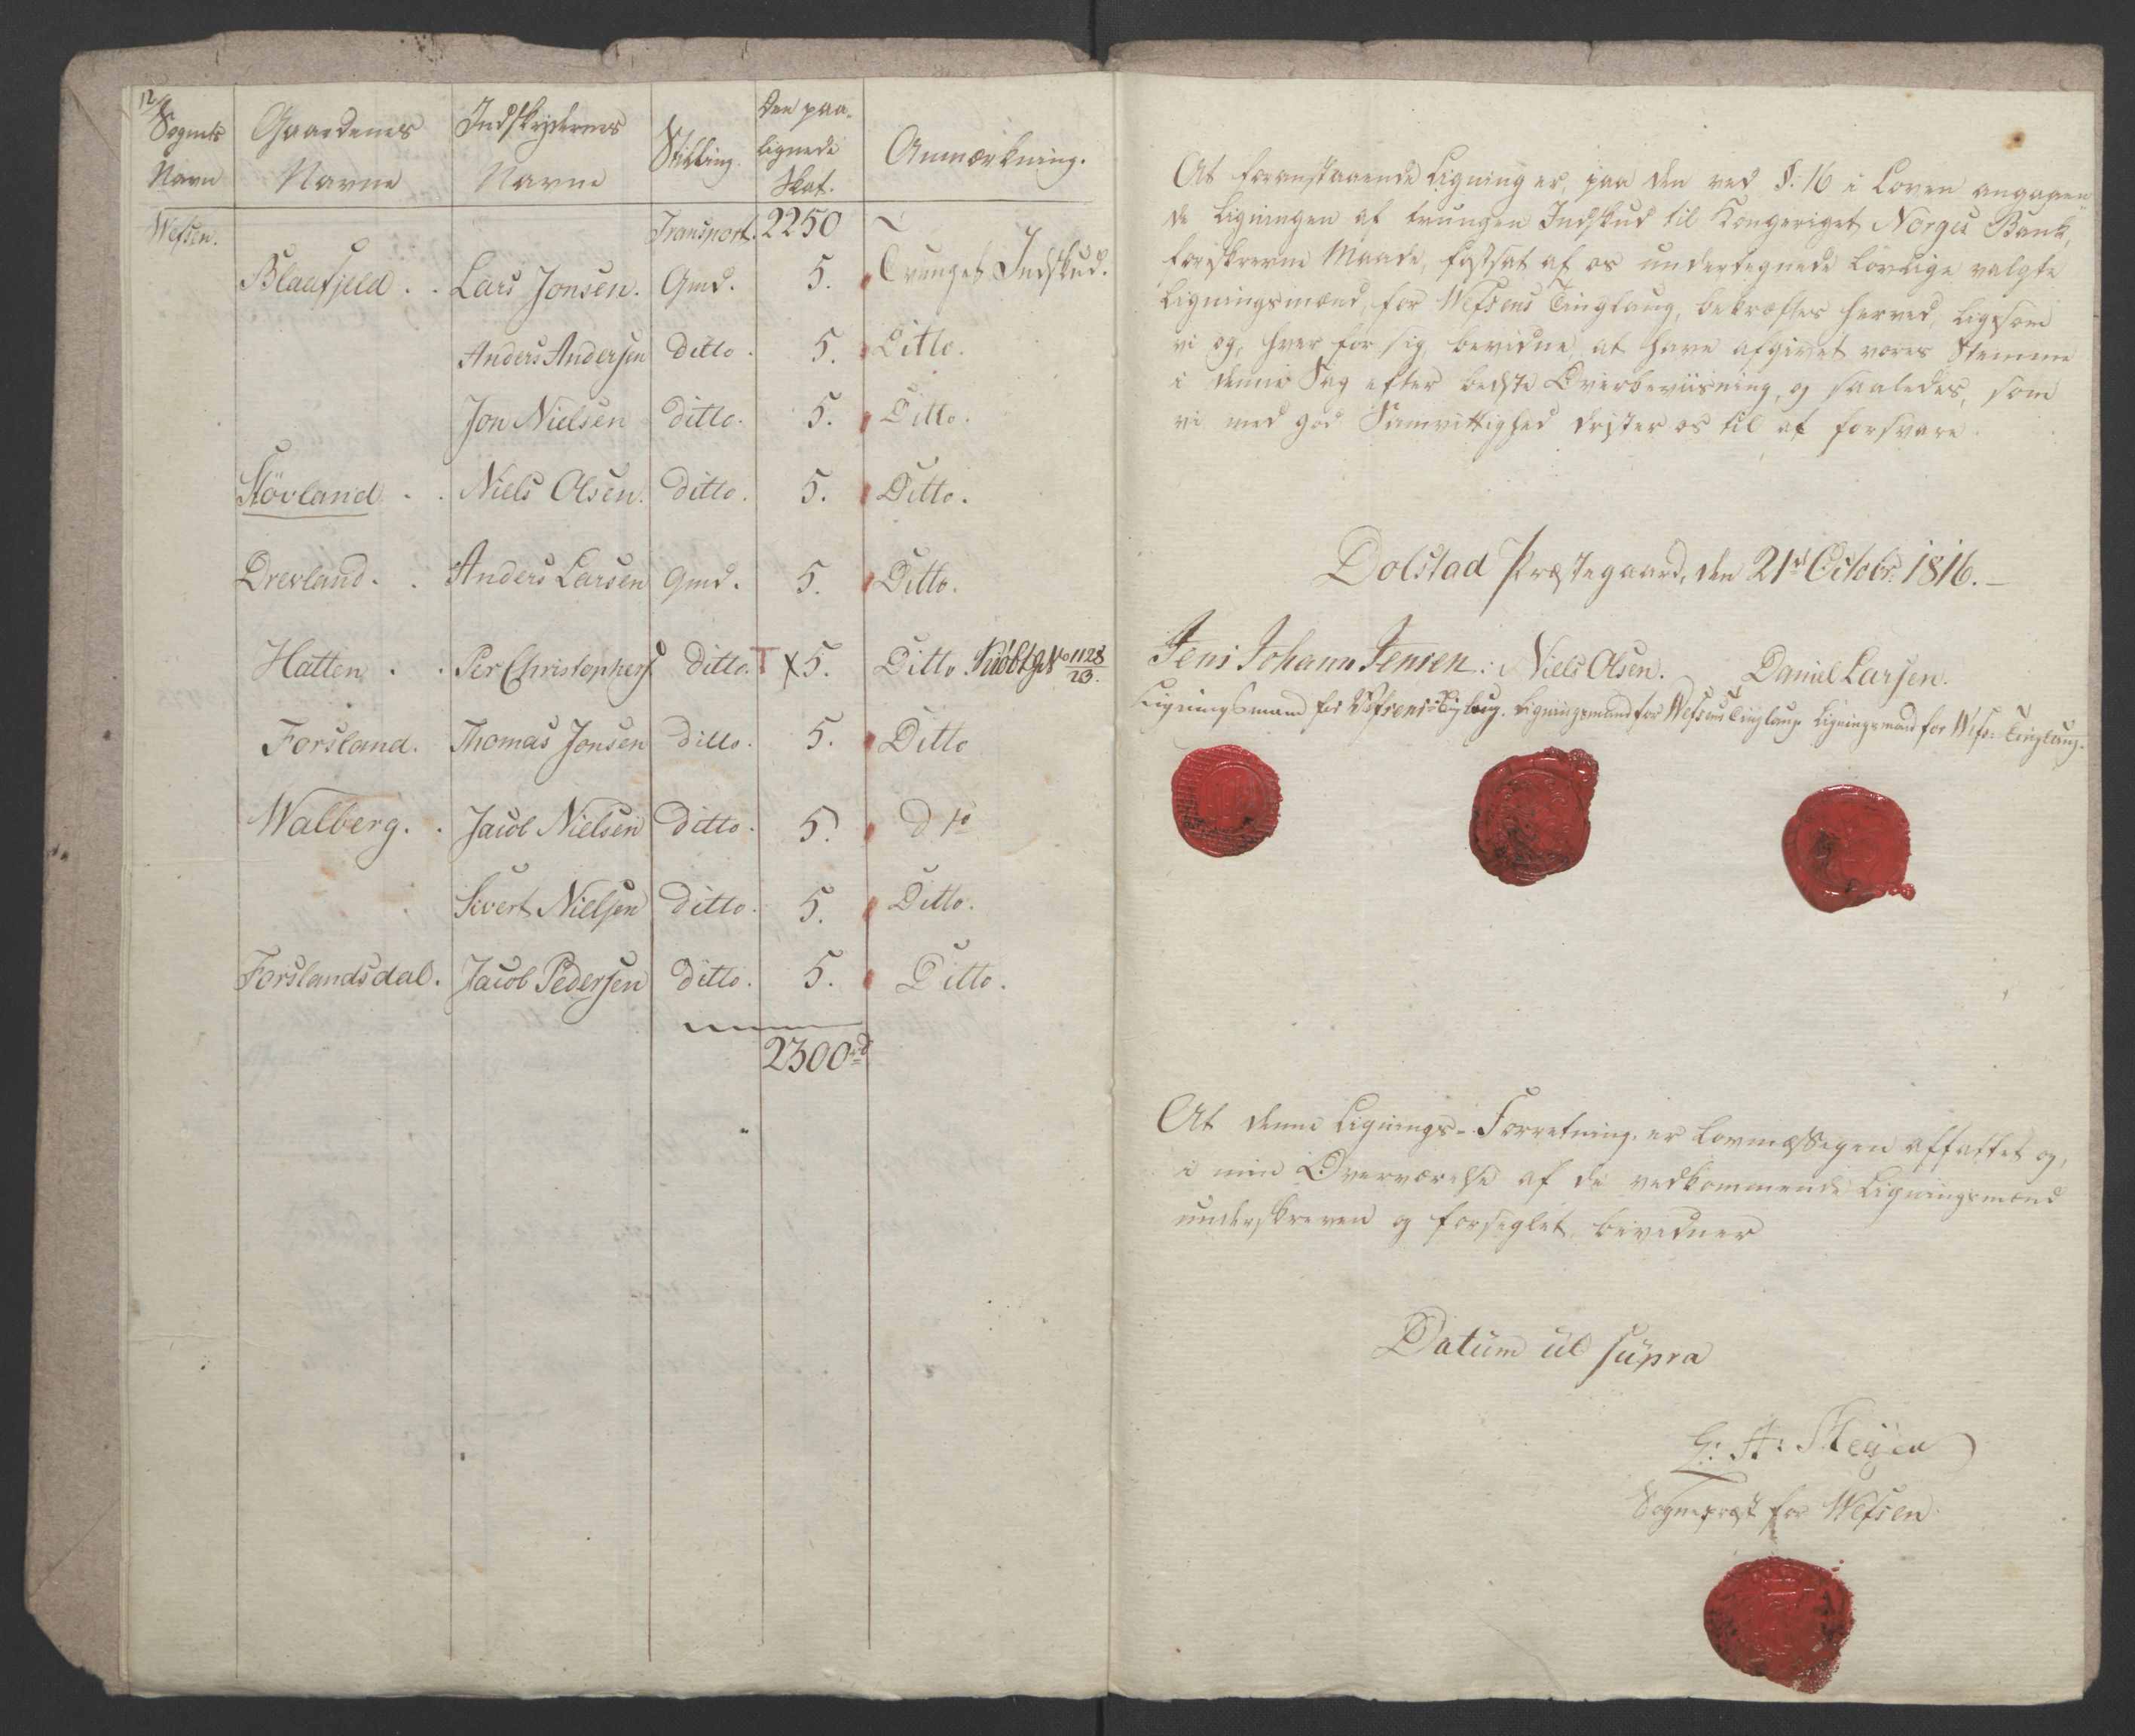 12
Sognets Navn | Gaardenes Navne | Indskydernes Navne | Stilling. | Den paalignede Skat. | Anmærkning.
Wefsen. | | | Transport. | 2250 |
Blaafjeld . . | Lars Jonsen. | Gmd. | 5. | Tvunget Indskud.
Anders Andersen | ditto. | 5. | Ditto.
Jon Nielsen | ditto. | 5. | Ditto.
Stövland . . | Niels Olsen. | ditto. | 5. | Ditto.
Drevland . . | Anders Larsen | Gmd. | 5. | Ditto.
Hatten . . | Per Christophers | ditto. | x 5. | Ditto. 1128/23.
Forsland. | Thomas Jonsen | ditto. | 5. | Ditto
Walberg. . | Jacob Nielsen | ditto. | 5. | Dto
Sivert Nielsen | ditto. | 5. | Ditto.
Forslandsdal. | Jacob Pedersen | ditto. | 5. | Ditto.
2300rd
At foranstaaende Ligning er, paa den ved §. 16 i Loven angaaen
de Ligningen af tvungen Indskud til Kongeriget Norges Bank,
foreskrevne Maade, fastsat af os undertegnede lovlige valgte
Ligningsmænd, for Wefsens Tinglaug, bekræftes herved, ligesom
vi og, hver for sig, bevidne, at have afgivet vores Stemme
i denne Sag efter bedste Overbeviisning, og saaledes, som
vi med god Samvittighed drister os til at forsvare.
Dolstad Præstegaard, den 21d Octobr. 1816.
Jens Johann Jensen. Niels Olsen. Daniel Larsen.
Ligningsmand for Wefsens Tinglaug. Ligningsmand for Wefsens Tinglaug. Ligningsmand for Wefs: Tinglaug.
At denne Lignings-Forretning er lovmæssigen affattet og,
i min Overværelse af de vedkommende Ligningsmænd
underskreven og forseglet, bevidner
Datum ut supra
Sognepræst for Wefsen.